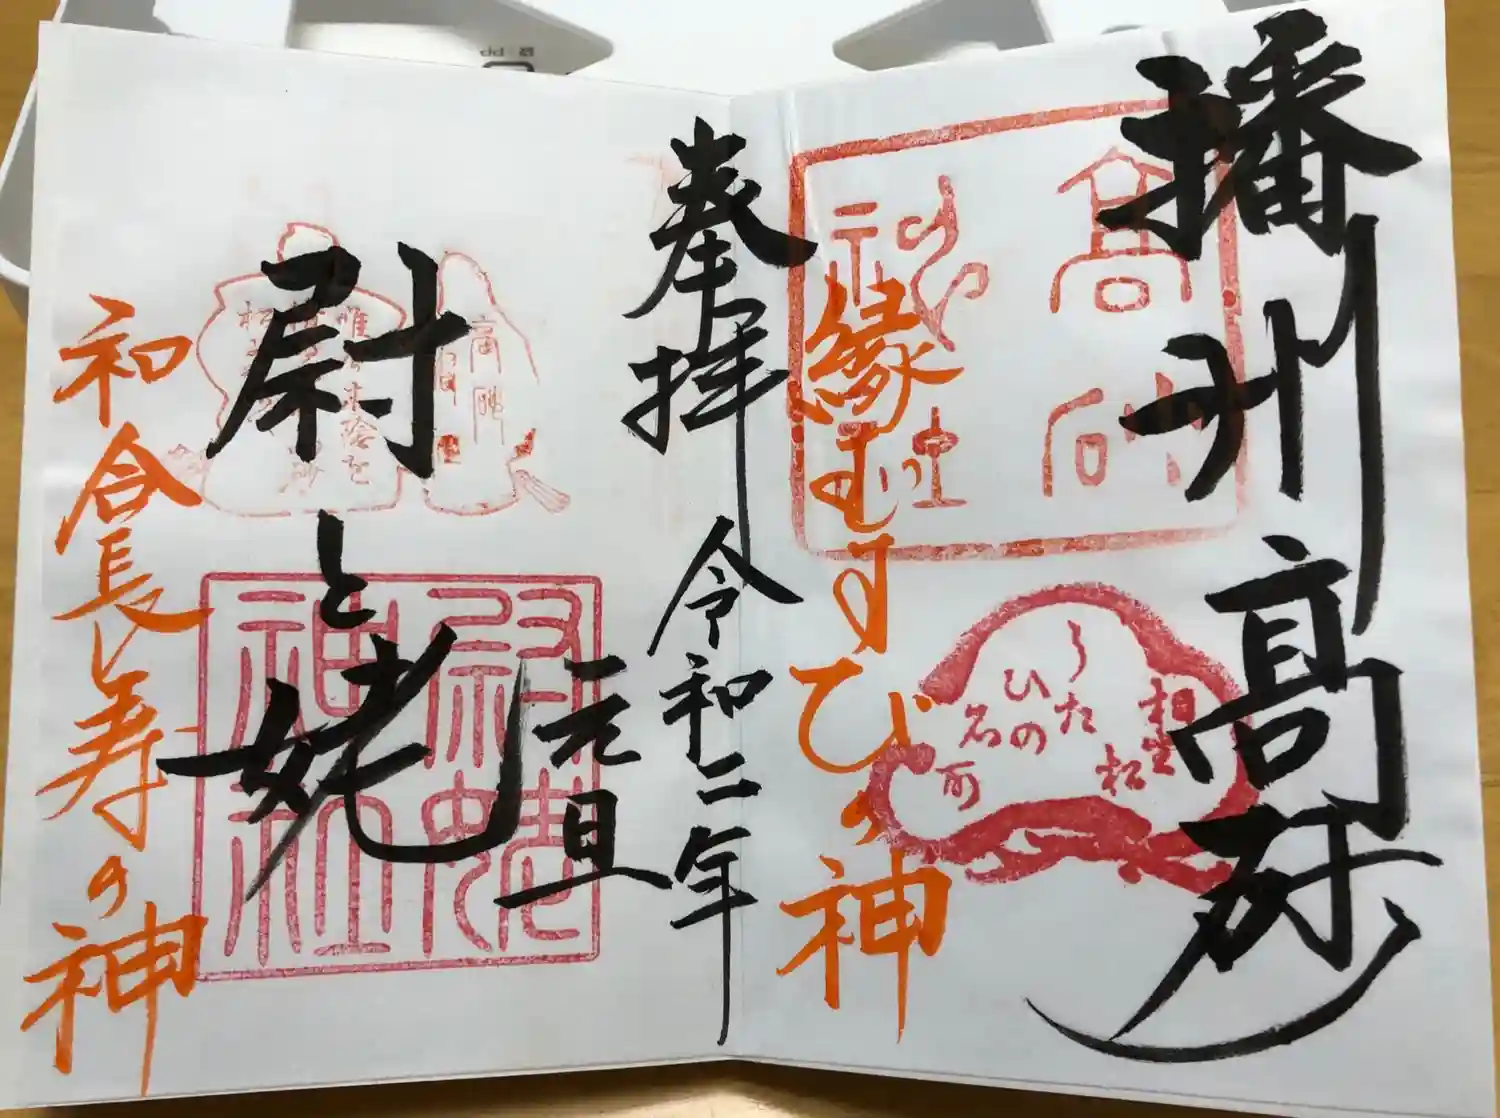 播州高砂
高砂
神社
相生
松
うた
ひの
名所
縁むすびの神
奉拝
令和二年
元旦
尉と姥
尉姥
神社
高砂
和合長寿の神